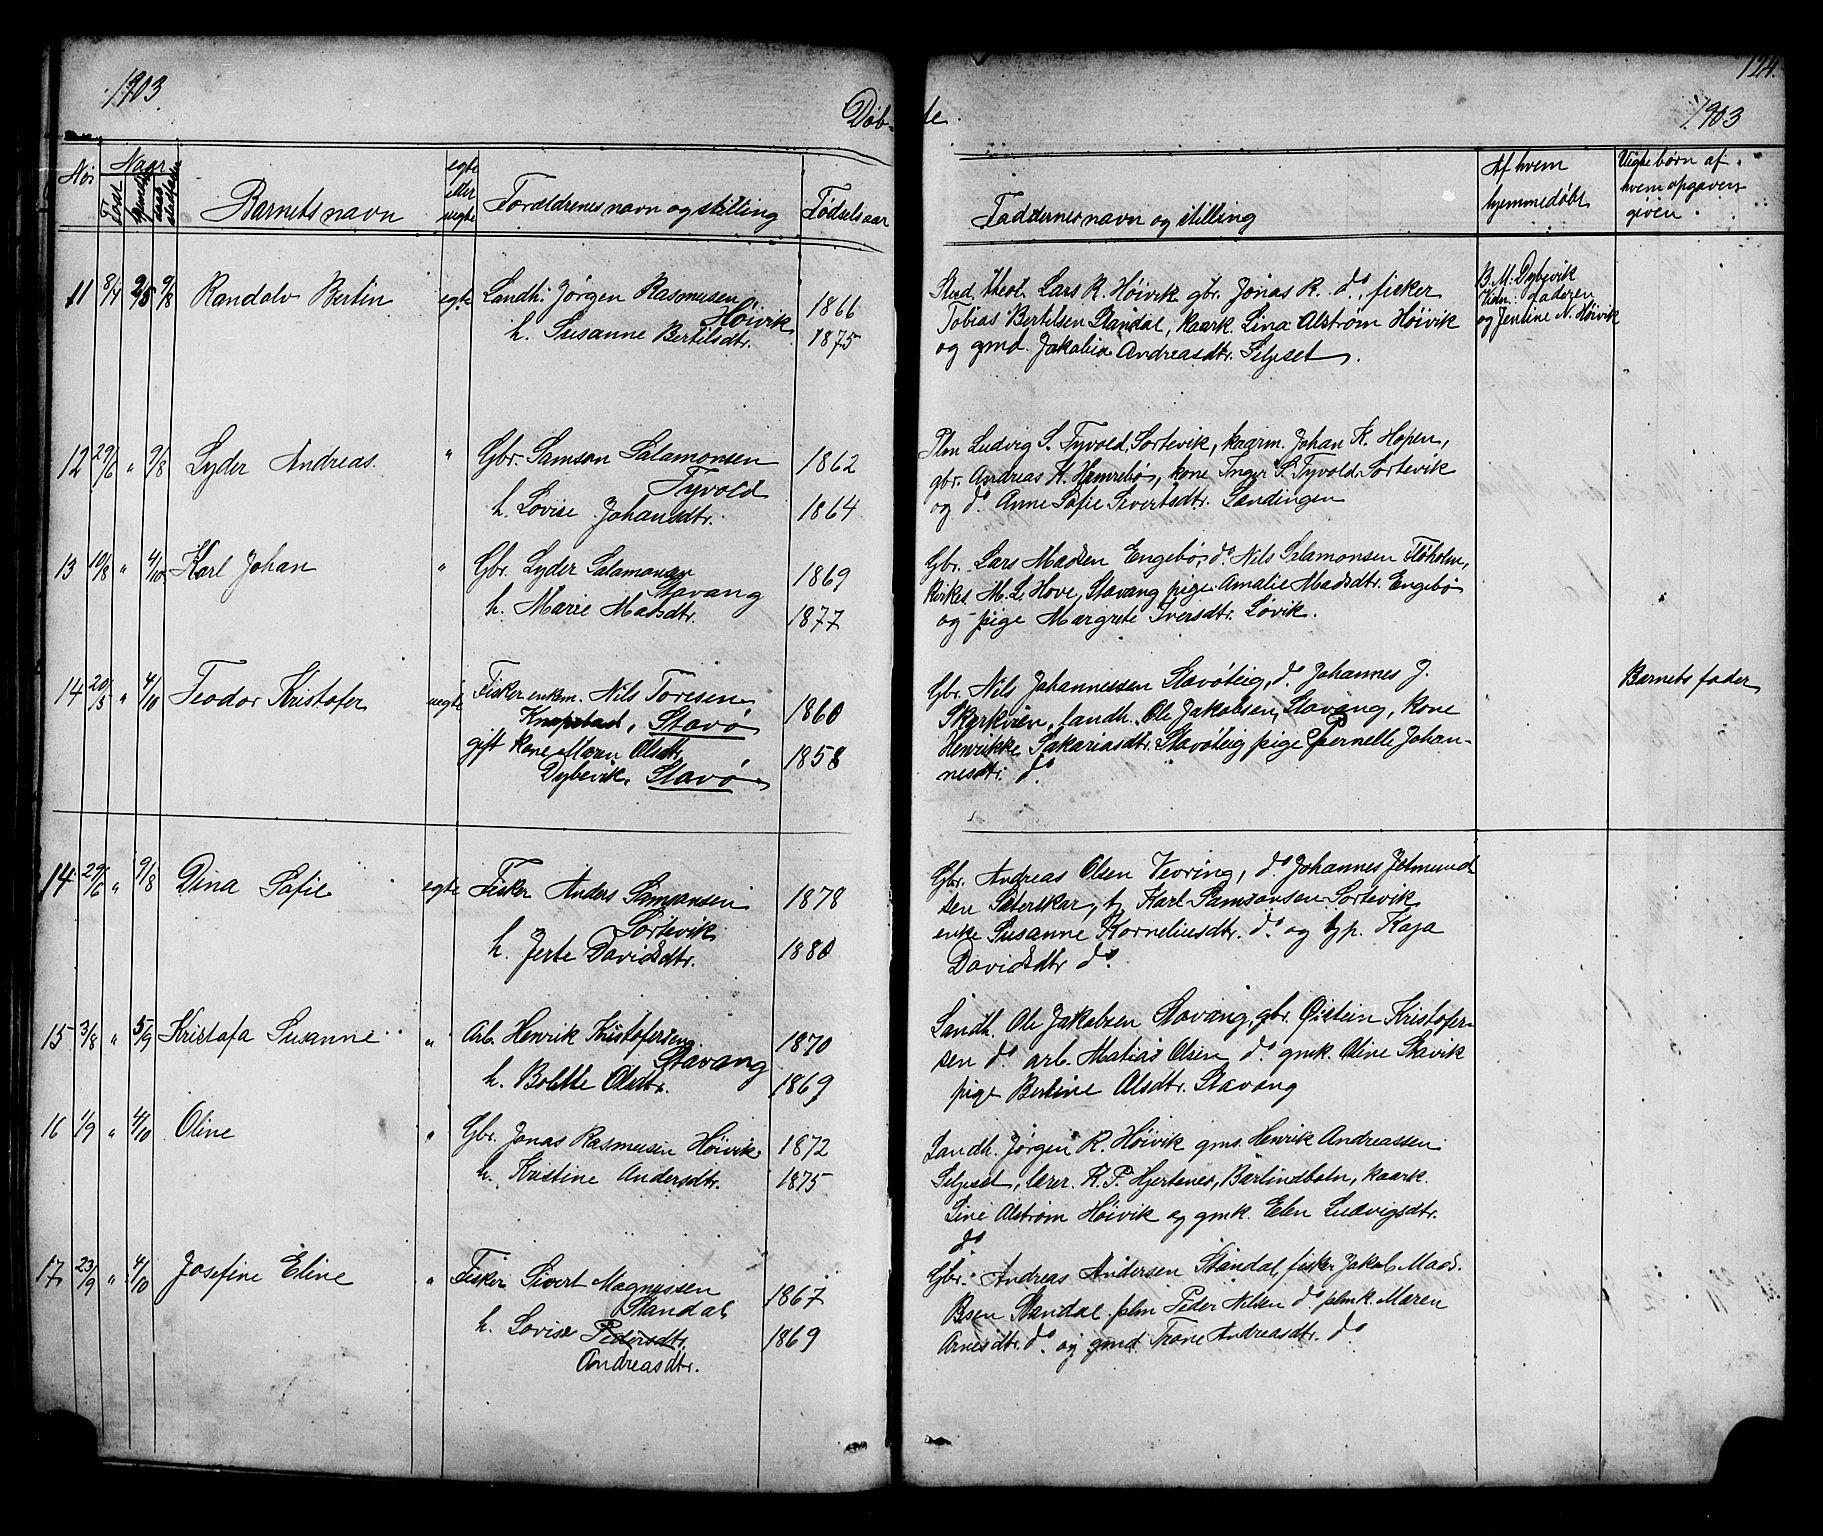 1903.
124.
Døb-
te.
1903
Nøs
Naar
Født
Barnets navn
egte
eller
uegte
Forældrenes navn og stilling
Fødselsaar
Faddernes navn og stilling
Af hvem
hjemmedøbt
Uegte børn af
hvem opgaven
given.
11 8/4 9/8 Randolv Bertin egte Landh. Jørgen Rasmusen 1866
Høivik
h. Susanne Bertilsdtr. 1875
Stud. theol. Lars R. Høivik gbr. Jonas R. do., fisker
Tobias Bertelsen Standal, kaark. Lina Alstrøm Høivik
og gmd. Jakobine Andreasdtr. Selpset.
B. M. Dybevik
Vidn. faderen
og Jentine N. Høivik
12 29/6 " 9/8 Lyder Andreas. " Gbr. Samson Salamonsen 1862
Tyvold
h. Lovise Johansdtr. 1864
Plm Ludvig S. Tyvold, Sortevik, kaarm. Johan K. Hopen,
gbr. Andreas K. Hamrebø, kone Inger S. Tyvold Sortevik
og do Anne Sofie Sivertsdtr. Sandingen
13 10/8 " 4/10 Karl Johan " Gbr. Lyder Salamonsen 1869
Stavang
h. Marie Madsdtr. 1877
Gbr. Lars Madsen Engebø, do Nils Salamonsen Fløholm,
kirkes. M. L. Hove, Stavang pige Amalie Madsdtr. Engebø
og pige Margrete Iversdtr. Løvik.
14 20/5 " 4/10 Teodor Kristofer uegte Fisker enkem. Nils Toresen 1860
Knapstad, Stavø
gift kone Maren Olsdtr. 1858
Dybevik, Stavø
Gbr. Nils Johannessen Stavøteig, do Johannes J.
Skorkvien, landh. Ole Jakobsen, Stavang, kone
Henrikke Sakariasdtr. Stavøteig pige Pernelle Johan-
nesdtr. do.
Barnets fader
14 29/6 " 9/8 Dina Sofie egte Fisker Anders Samsonsen 1878
Sortevik
h. Jerte Davidsdtr. 1880
Gbr. Andreas Olsen Vevring, do Johannes Jetmund-
sen Sæterskar, tj. Karl Samsonsen Sortevik
enke Susanne Korneliusdtr. do. og tjp. Kaja
Davidsdtr do.
15 3/8 " 5/9 Kristofa Susanne " Arb. Henrik Kristofersen 1870
Stavang
h. Bolette Olsdtr. 1869
Landh. Ole Jakobsen Stavang, gbr. Øistein Kristofer-
sen do arb. Matias Olsen do. gmk. Oline Stavik
pige Bertine Olsdtr. Stavang
16 1/9 " 4/10 Oline " Gbr. Jonas Rasmusen Høivik 1872
h. Kristine Andersdtr. 1875
Landh. Jørgen R. Høivik gms. Henrik Andreassen
Selpset, lærer K. P. Hjertenes, Barlindbotn, kaark.
Line Alstrøm Høivik og gmk. Elen Ludvigsdtr.
do
17 23/9 " 4/10 Josefine Eline " Fisker Sivert Magnussen 1867
Standal
h. Lovise Pedersdtr. 1869
Andreasdtr.
Gbr. Andreas Andersen Standal, fisker Jakob Mad-
sen Standal plm Peder Nilsen do plmk. Maren
Arnesdtr. do. og gmd. Trane Andreasdtr. do